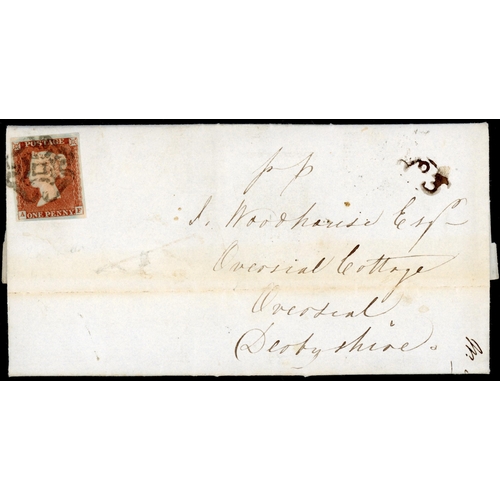 POSTAGE
ONE PENNY
pp
J. Woodhouse Esqr
Overseal Cottage
Overseal
Derbyshire.